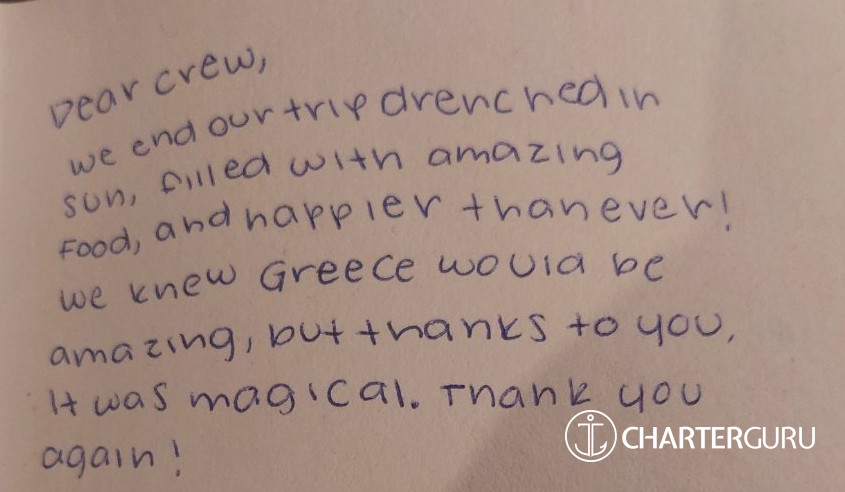 Dear crew,
we end our trip drenched in
sun, filled with amazing
food, and happier than ever!
we knew Greece would be
amazing, but thanks to you,
it was magical. Thank you
again!
CHARTERGURU